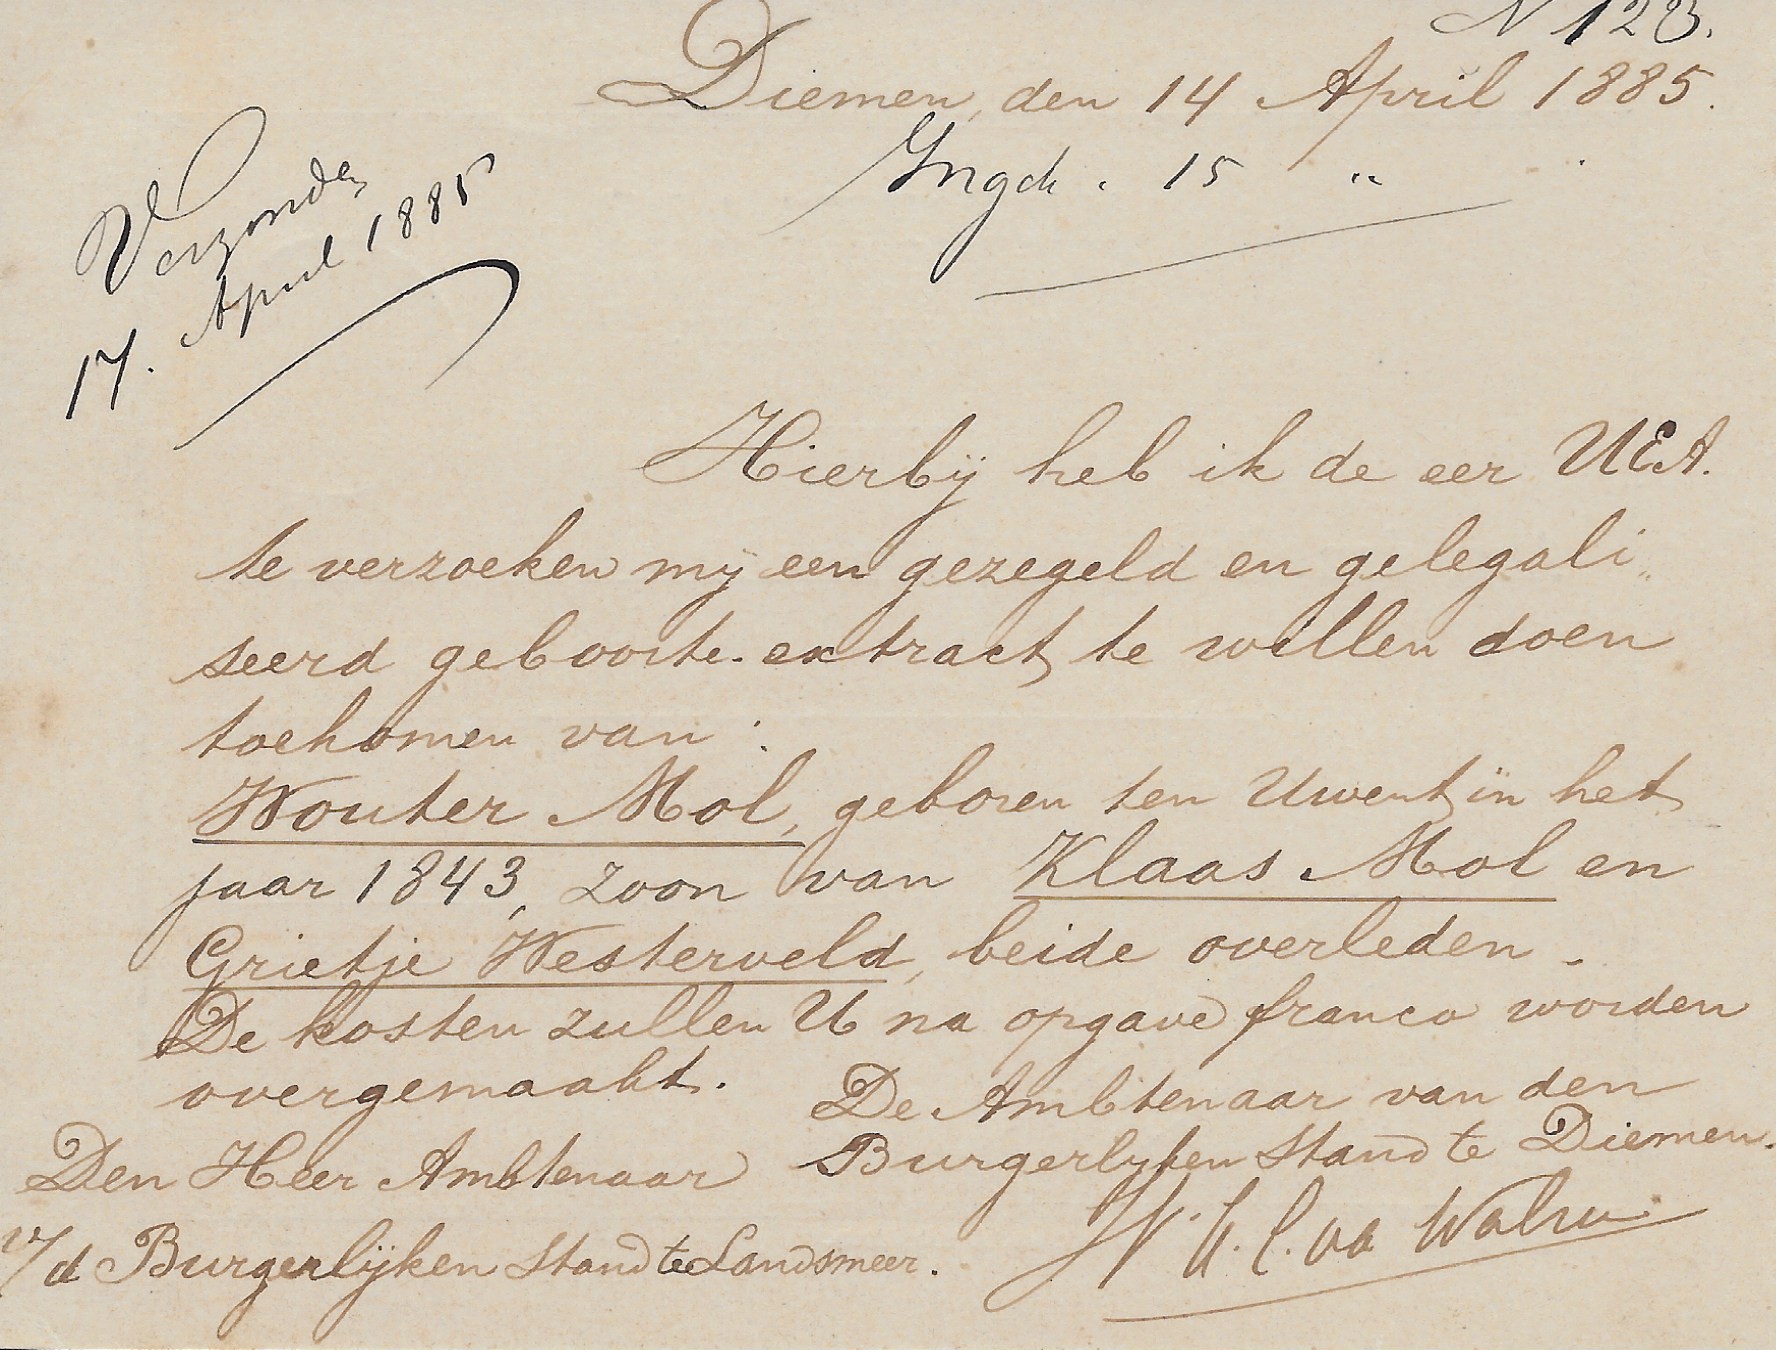 N 123.
Diemen, den 14 April 1885.
Ingek. 15 "
Verzonden
17. April 1885
Hierbij heb ik de eer UEA.
te verzoeken mij een gezegeld en gelegali„
seerd geboorte-extract te willen doen
toekomen van :
Wouter Mol, geboren ten Uwent in het
jaar 1843, zoon van Klaas Mol en
Grietje Westerveld, beide overleden.
De kosten zullen U na opgave franco worden
overgemaakt.
De Ambtenaar van den
Burgerlijken Stand te Diemen.
Den Heer Ambtenaar
v/d Burgerlijken Stand te Landsmeer.